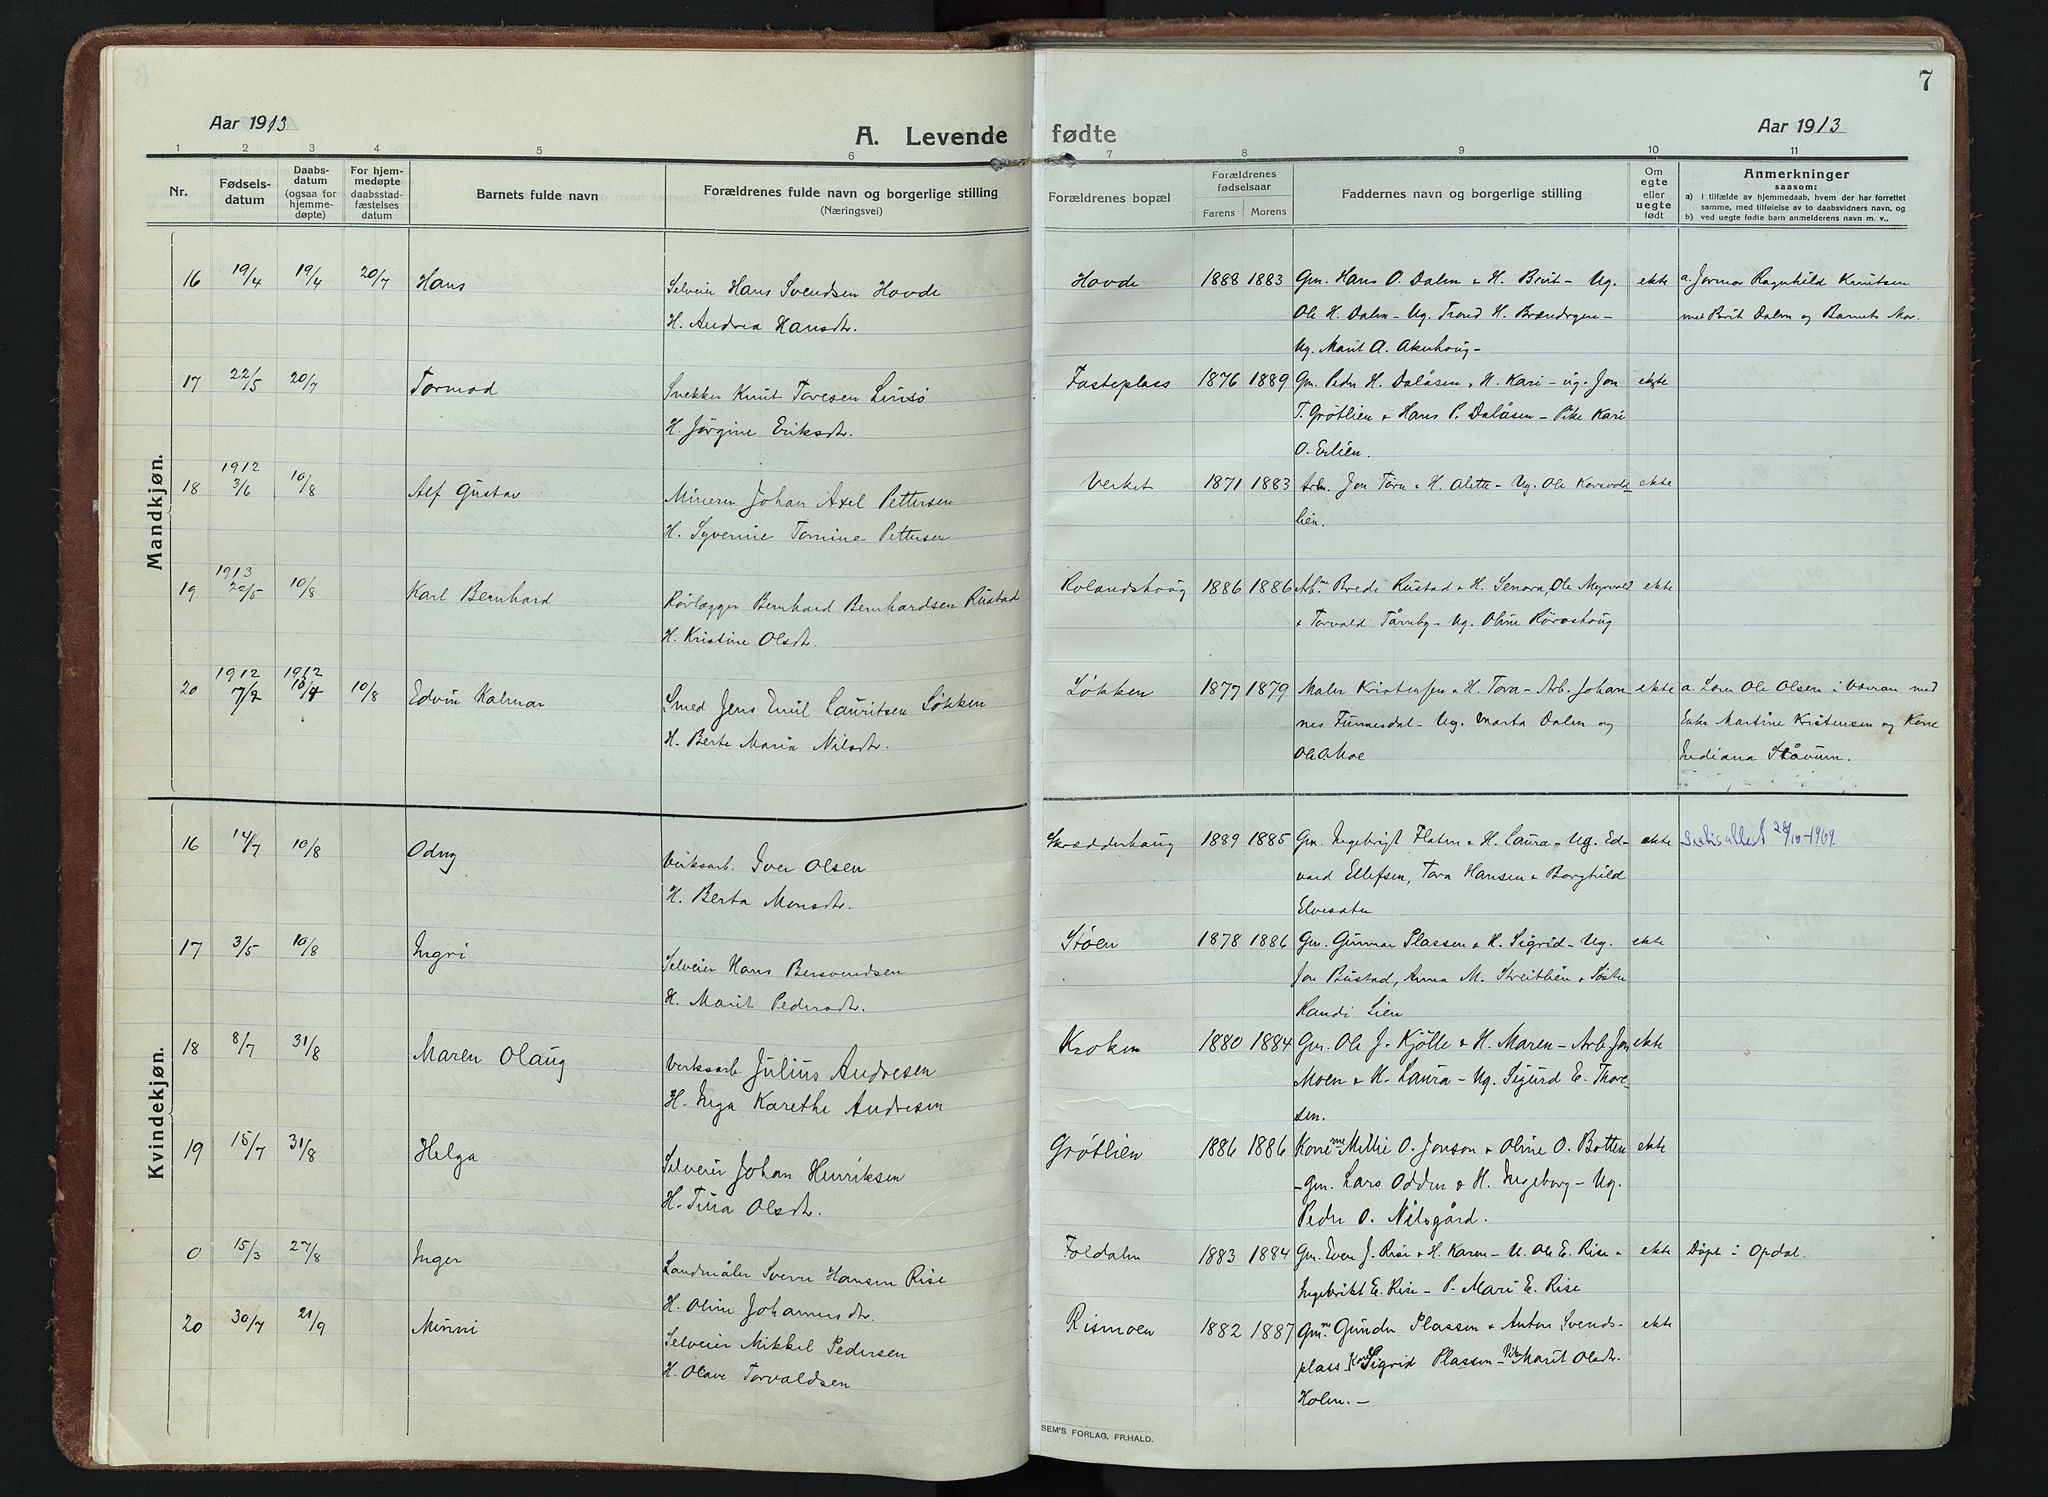 7
Aar 1913
A. Levende fødte
Aar 1913
1 2 3 4 5 6 7 8 9 10 11
Nr.
Fødsels-
datum
Daabs-
datum
(ogsaa for
hjemme-
døpte)
For hjem-
medøpte
daabsstad-
fæstelses
datum
Barnets fulde navn
Forældrenes fulde navn og borgerlige stilling
(Næringsvei)
Forældrenes bopæl
Forældrenes
fødselsaar
Farens Morens
Faddernes navn og borgerlige stilling
Om
egte
eller
uegte
født
Anmerkninger
saasom:
a) i tilfælde av hjemmedaab, hvem der har forrettet
samme, med tilføielse av to daabsvidners navn, og
b) ved uegte fødte barn anmelderens navn m. v..
Mandkjøn.
16 19/4 19/4 20/7 Hans Selveier Hans Svendsen Hovde Hovde 1888 1883 Gm. Hans O. Dalen & H. Brit – Ug. ekte a. Jormor Ragnhild Knutsen
H. Andrea Hansdtr. Ole H. Dalen – Ug. Trond H. – med Brit Dalen og Barnets Mor.
Ug. Marit A.
17 22/5 20/7 Tormod Snekker Knut Toresen Linsö Fasteplass 1876 1889 Gm. Peder H. Dalåsen & H. Kari – ug. Jon ekte
H. Jörgine Eriksdtr. T. Grøtlien & Hans P. Dalåsen – Pike Kari
O. Erlien.
18 1912 3/6 10/8 Alf Gustav Minerer Johan Axel Pettersen Verket 1871 1883 Arb. Jon & H. Alette – Ug. Ole ekte
H. Syverine Tomine Pettersen lien.
19 1913 22/5 10/8 Karl Bernhard Rörlegger Bernhard Bernhardsen Rustad Rolandshoug 1886 1886 Arb. Brede Rustad & H. Senora, Ole Myrvold ekte
H. Kristine Olsdtr. & Torvald Tårnby – Ug. Oline
20 1912 7/2 1912 10/4 10/8 Edvin Kalmar Smed Jens Emil Lauritsen Løkken Løkken 1877 1879 Maler Kristensen & H. Tora – Arb. Johan ekte a. Ole Olsen i med
H. Berte Maria Nilsdtr. nes Funnesdal – Ug. Marta Dalen og Enke Martine Kristensen og Kone
Ole Moe Indiana Ståvum.
Kvindekjøn.
16 14/7 10/8 Odny Verksarb. Iver Olsen Skrædderhaug 1889 1885 Gm. Ingebrigt Flaten & H. Laura – Ug. Ed- ekte 28/10-1909.
H. Berta Monsdtr. vard Ellefsen, Tora Hansen & Borghild
Elvesæter
17 3/5 10/8 Ingri Selveier Hans Bersvendsen Støen 1878 1886 Gm. Gunnar Plassen & H. Sigrid – Ug. ekte
H. Marit Pedersdtr. Jon Bustad, Anna M. Streitlien & Søster
Randi Lien
18 8/7 31/8 Maren Olaug Verksarb. Julius Andresen Kroken 1880 1884 Gm. Ole J. Kjölle & H. Maren – Arb. Jon ekte
H. Inga Karethe Andresen Moen & H. Laura – Ug. Sigurd E. Thore-
sen.
19 15/7 31/8 Helga Selveier Johan Henriksen Grøtlien 1886 1886 Kone Millie O. Jonson & Oline O. Botten ekte
H. Tina Olsdtr. – Gm. Lars Odden & H. Ingeborg – Ug.
Peder O. Nilsgård.
0 15/3 27/8 Inger Landmåler Sverre Hansen Rise Foldalen 1883 1884 Gm. Even J. Rise & H. Karen – U. Ole E. Rise & ekte Døpt i Opdal.
H. Oline Johannesdtr. Ingebrikt E. Rise – P. Mari E. Rise
20 30/7 21/9 Minni Selveier Mikkel Pedersen Rismoen 1882 1887 Gm. Gunder Plassen & Anton Svends- ekte
H. Olave Torvaldsen plass, Kone Sigrid Plassen – Pike Marit Olsdtr.
Holen. –
SEM'S FORLAG, FR.HALD.